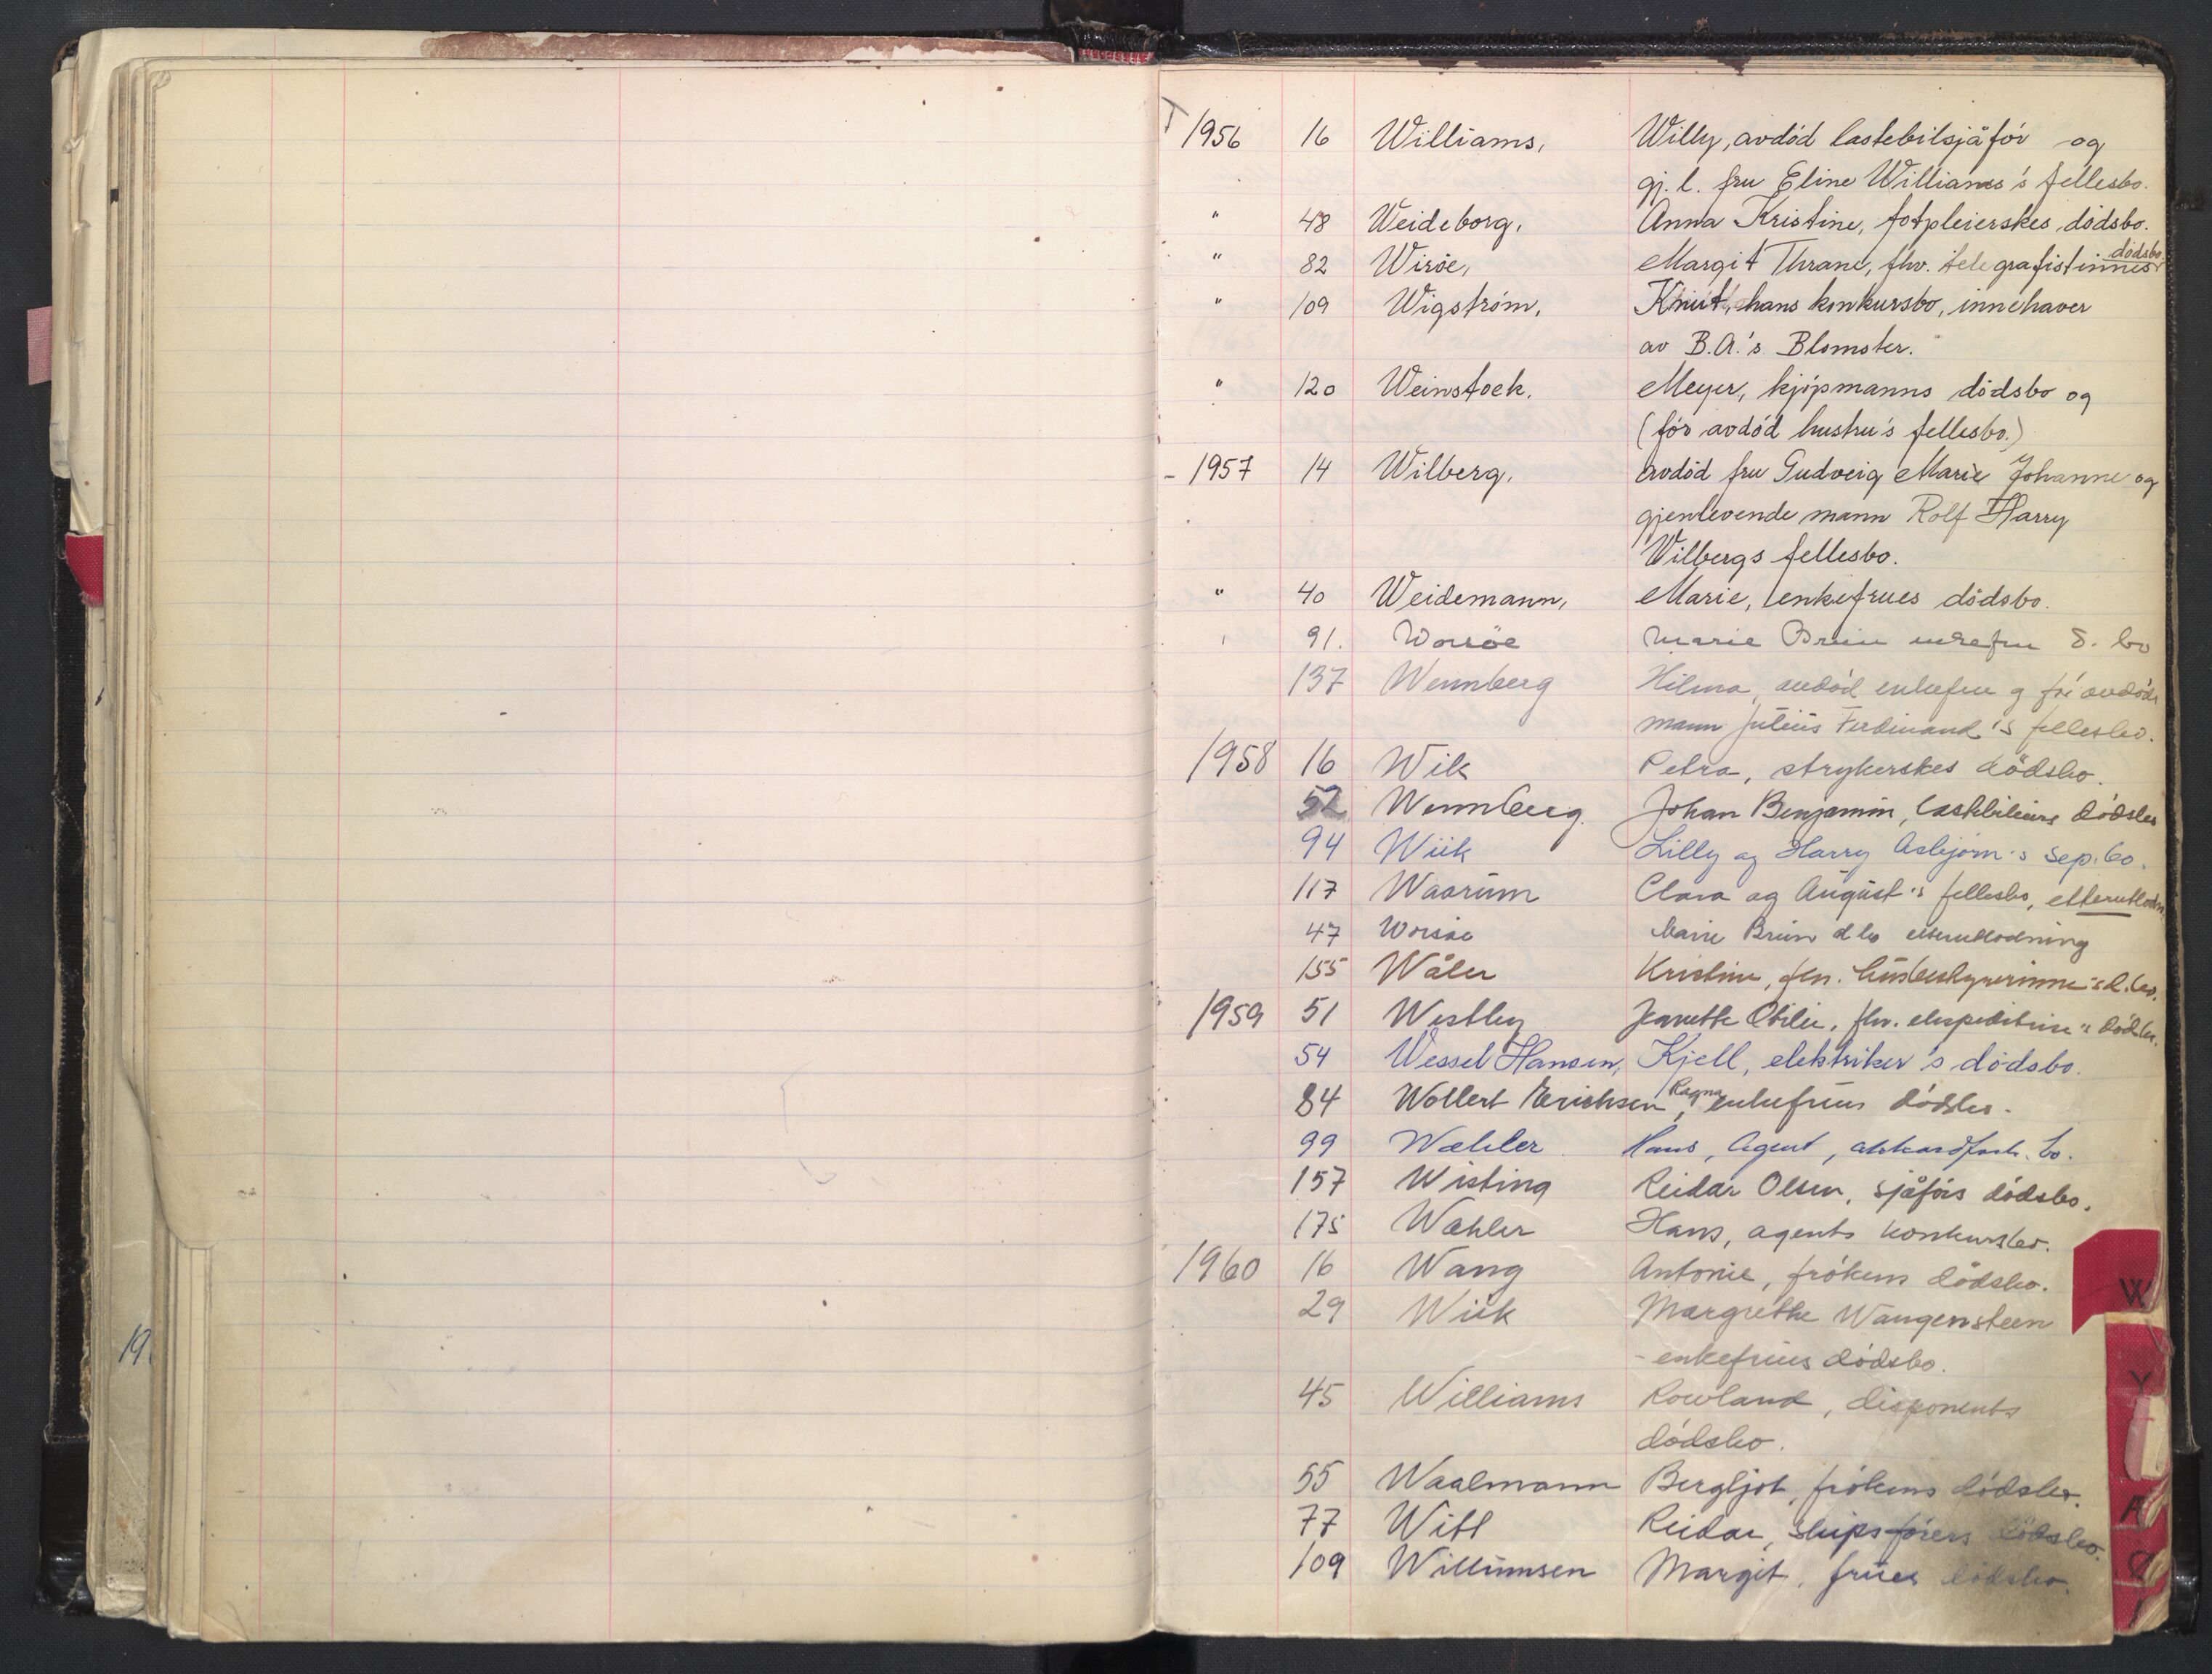 1956 16 Williams, Willy, avdöd lastebilsjåför og
gj. l. fru Eline Williams's fellesbo.
" 48 Weideborg, Anna Kristine, fotpleierskes dödsbo.
" 82 Wiröe, Margit Thrane, fhv. telegrafistinnes dödsbo
" 109 Wigström, Knut, hans konkursbo, innehaver
av B.A.'s Blomster.
" 120 Weinstock, Meyer, kjöpmanns dödsbo og
(för avdöd hustru's fellesbo.)
- 1957 14 Wilberg, avdöd fru Gudveig Marie Johanne og
gjenlevende mann Rolf Harry
Wilbergs fellesbo.
" 40 Weidemann, Marie, enkefrues dödsbo.
91. Worsöe Marie Bruun enkefru d. bo
137 Wennberg Hilma, avdöd enkefru og för avdöde
mann Julius Ferdinand's fellesbo.
1958 16 Wik Petra, strykerskes dödsbo.
52 Wennberg. Johan Benjamin, dödsbo
94 Wiik Lilly og Harry Asbjörn's sep.bo.
117 Waarum Clara og August's fellesbo, etterutlodn.
47 Worsöe Marie Bruun d bo etterutlodning
155 Wåler Kristine, fhv. husbestyrerinne's d.bo.
1959 51 Westby Jeanette Otilie, fhv. ekspeditrise's dödsbo.
54 Wessel Hansen, Kjell, elektriker's dödsbo.
84 Wollert Erichsen, Ragna enkefrues dödsbo.
99 Wæhler Hans, Agent, akkordforh. bo.
157 Wisting Reidar Olsen, sjåförs dödsbo.
175 Wæhler Hans, agents konkursbo.
1960 16 Wang Antonie, frökens dödsbo.
29 Wiik Margrethe Wangensteen
- enkefrues dödsbo.
45 Williams Rowland, disponents
dödsbo.
55 Waalmann Bergljot, frökens dödsbo.
77 Witt Reidar, skipsförers dödsbo.
109 Willumsen Margit, frues dödsbo.
W
Y
19